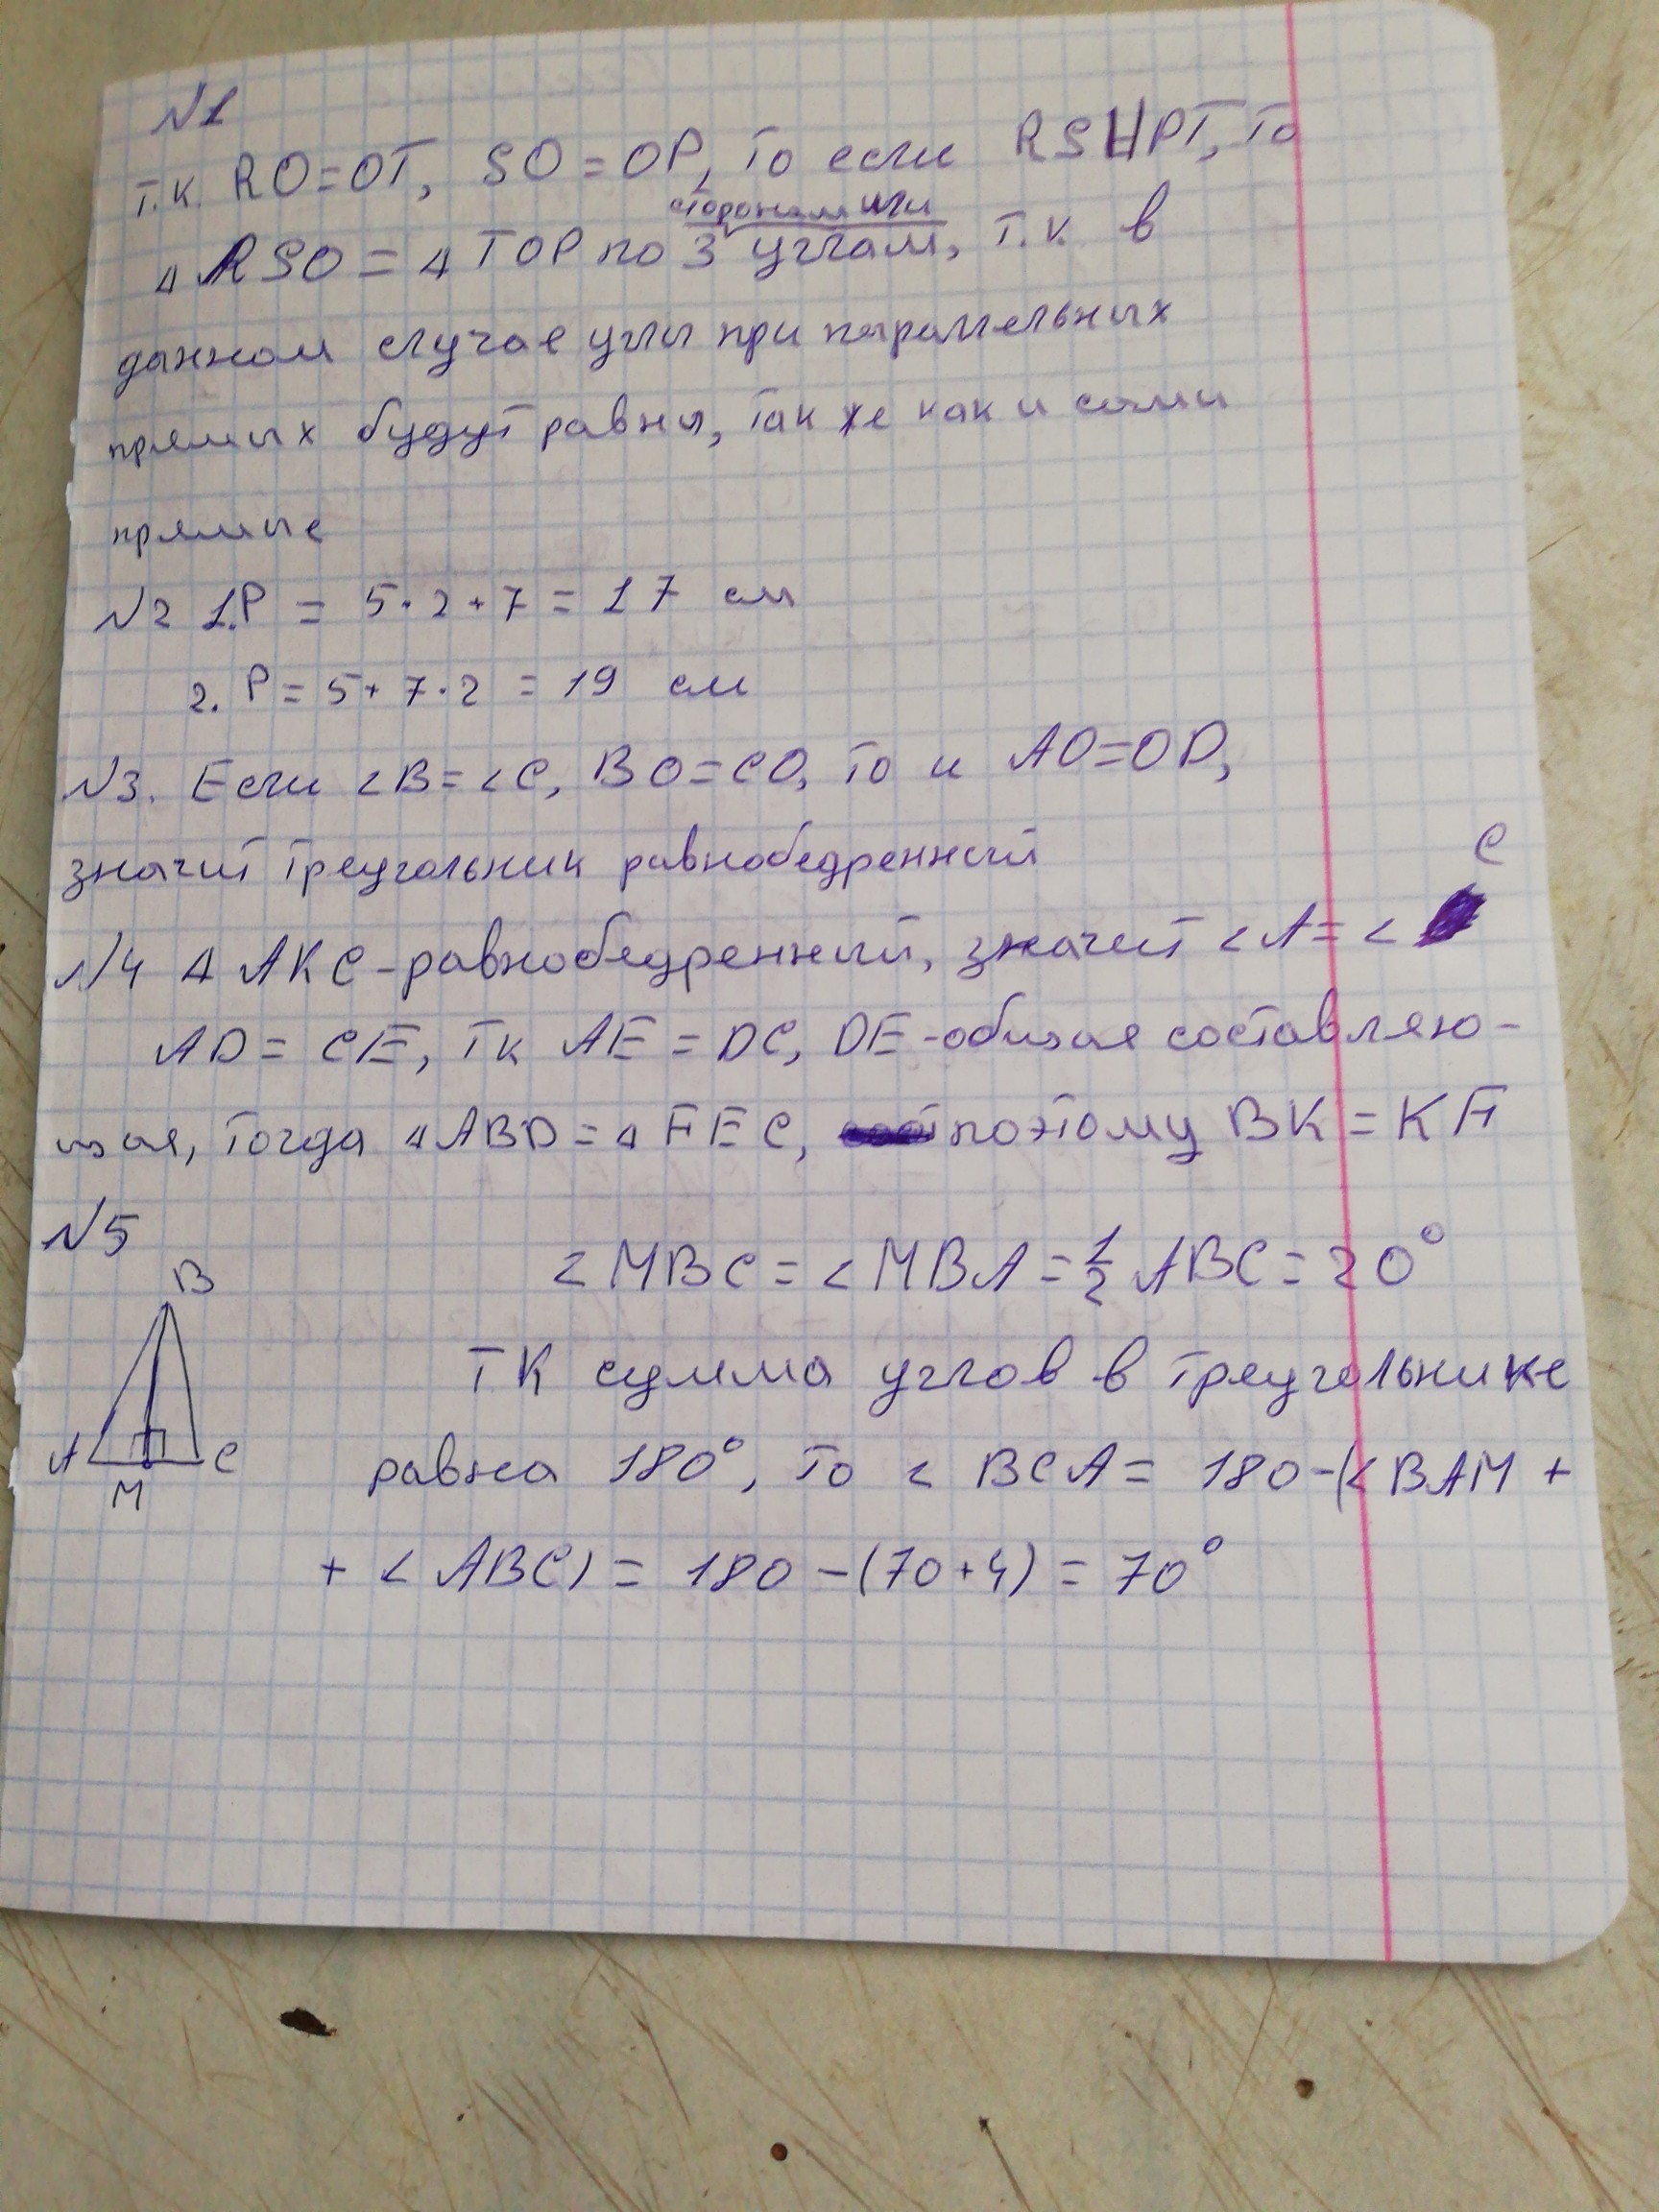 №1
т.к. RO=OT, SO=OP, то если RS||PT, то
сторонам или
△RSO=△TOP по 3 углам, т.к. в
данном случае углы при параллельных
прямых будут равны, так же как и сами
прямые
№2 1.P = 5·2+7=17 см
2. P=5+7·2=19 см
№3. Если ∠B=∠C, BO=CO, то и AO=OD,
значит треугольник равнобедренный
C
№4 △AKC-равнобедренный, значит ∠A=∠
AD=CE, тк AE=DC, DE-общая составляю-
щая, тогда △ABD=△FEC, поэтому BK=KF
№5
B
∠MBC=∠MBA=1/2 ABC=20°
ТК сумма углов в треугольнике
A C
M
равна 180°, то ∠BCA=180-(∠BAM+
+∠ABC)=180-(70+4)=70°